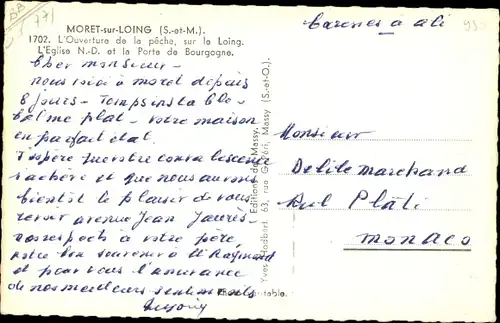 MORET-sur-LOING (S.-et-M.).
1702. L'Ouverture de la pêche, sur le Loing.
L'Eglise N.-D. et la Porte de Bourgogne.
Cher monsieur -
nous voici à moret depuis
8 jours - Temps instable -
calme plat - votre maison
en parfait état.
J'espère que votre convalescence
s'achève et que nous aurons
bientôt le plaisir de vous
revoir avenue Jean Jaurès -
nos respects à votre père
notre bon souvenir à St Raymond
et pour vous l'assurance
de nos meilleurs sentiments
Editions du Massy.
Yves Rodbart, 63, rue Massy (S.-et-O.).
Monsieur
Delile marchand
Rue Plati
monaco